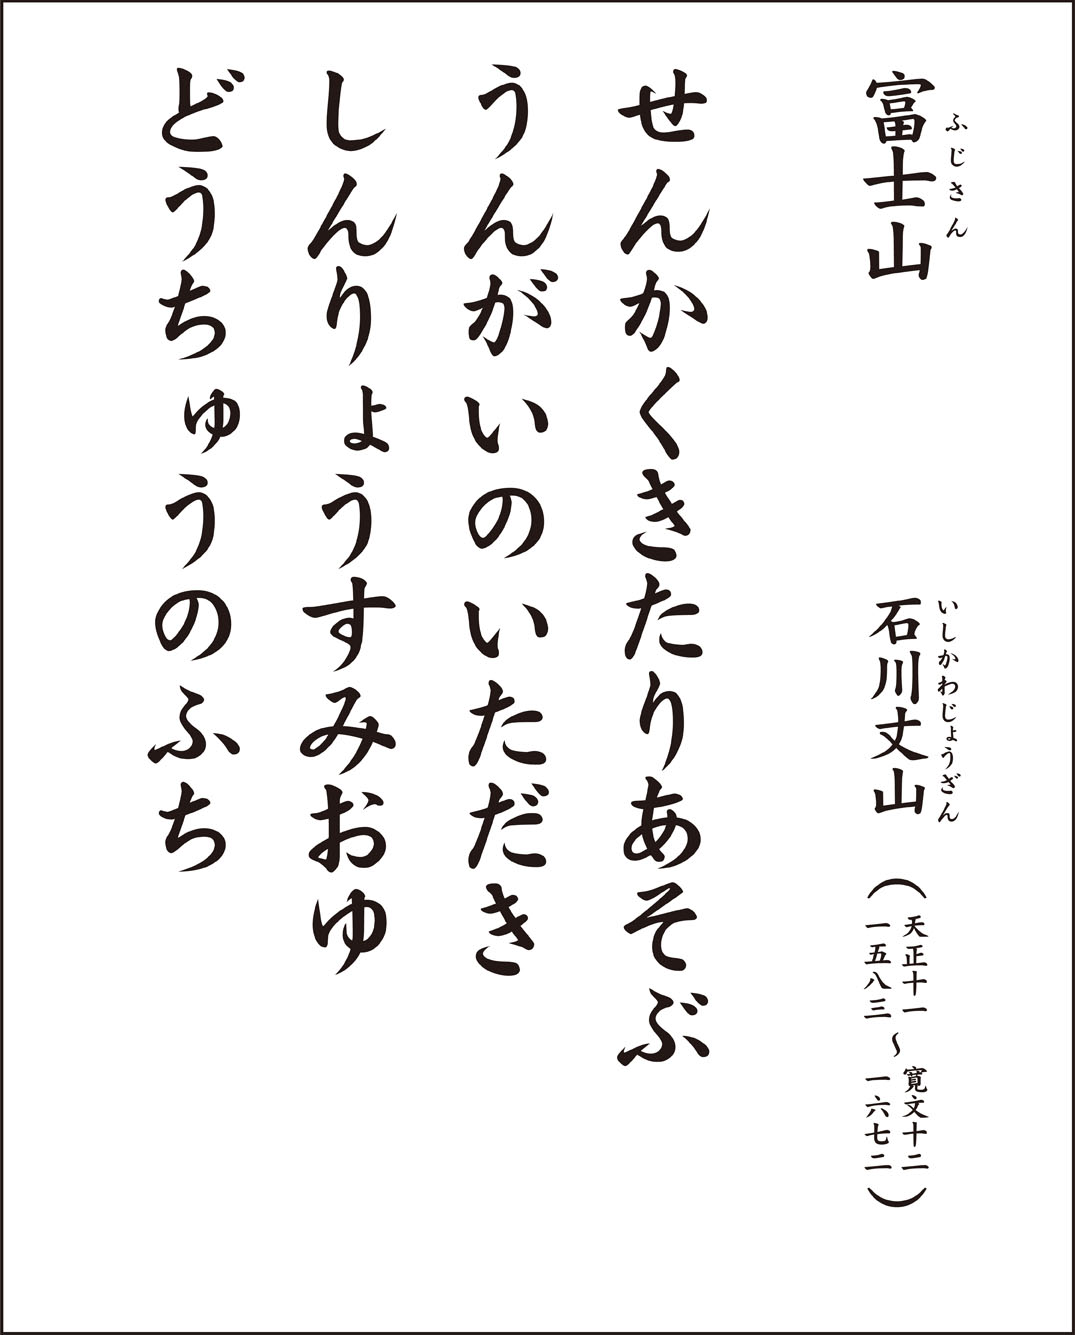 富士山
ふじさん
石川丈山
いしかわじょうざん
(天正十一
一五八三
~
寛文十二
一六七二)
せんかくきたりあそぶ
うんがいのいただき
しんりょうすみおゆ
どうちゅうのふち